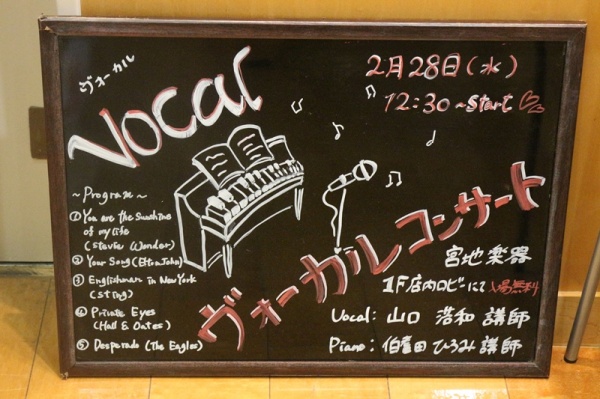 ヴォーカル
Vocal
2月28日(水)
12:30~Start
~Program~
① You are the Sunshine
of my life
(Stevie Wonder)
② Your Song (Elton John)
③ Englishman in New York
(Sting)
④ Private Eyes
(Hall & Oates)
⑤ Desperado (The Eagles)
ヴォーカルコンサート
宮地楽器
1F店内ロビーにて 入場無料
Vocal: 山口 浩和 講師
Piano: 伯田 ひろみ 講師